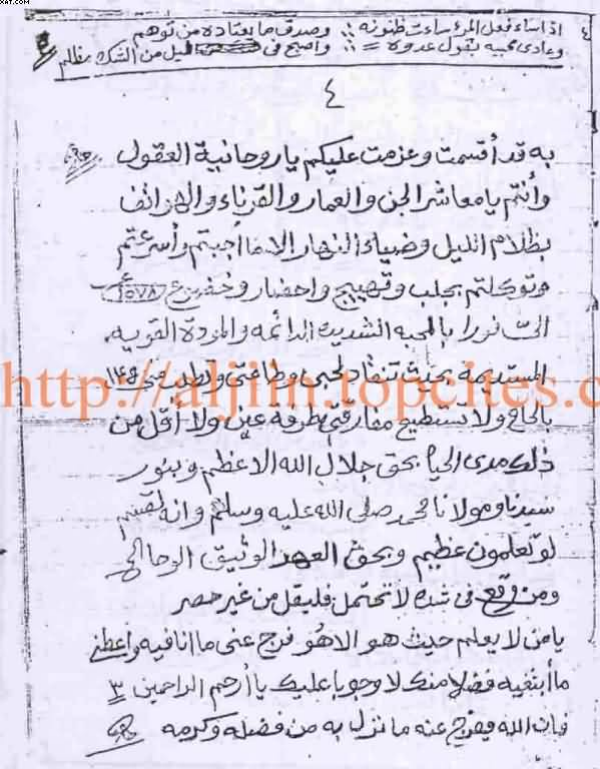 XAT.COM
اذا ساء فعل المرء ساءت ظنونه :: وصدق ما يعتاده من توهم
وعادى محبيه بقول عدوه :: واصبح في ليل من الشك مظلم
٤
به قد أقسمت وعزمت عليكم يا روحانية العقول
وأنتم يا معاشر الجن والعمار والقرناء والهواتف
بظلام الليل وضياء النهار إلا ما أجبتم وأسرعتم
وتوكلتم بجلب وتهييج واحضار وخضوع ١٥٧٨
الى نورا بالمحبه الشديده الدائمه والمودة القويه
المستديمه بحيث تنقاد لحبى وطاعتى
http://aljiin.topcites.c
بالحاح ولا يستطيع مفارقتى طرفة عين ولا أقل من
ذلك مدى الحياه بحق جلال الله الاعظم وبنور
سيدنا ومولانا محمد صلى الله عليه وسلم وانه لقسم
لو تعلمون عظيم وبحق العهد الوثيق الوحا
ومن وقع فى شده لا تحتمل فليقل من غير حصر
يا من لا يعلم حيث هو الا هو فرج عنى ما انا فيه واعطنى
ما أبتغيه فضلا منك لا وجوبا عليك يا أرحم الراحمين ٣
فان الله يفرج عنه ما نزل به من فضله وكرمه